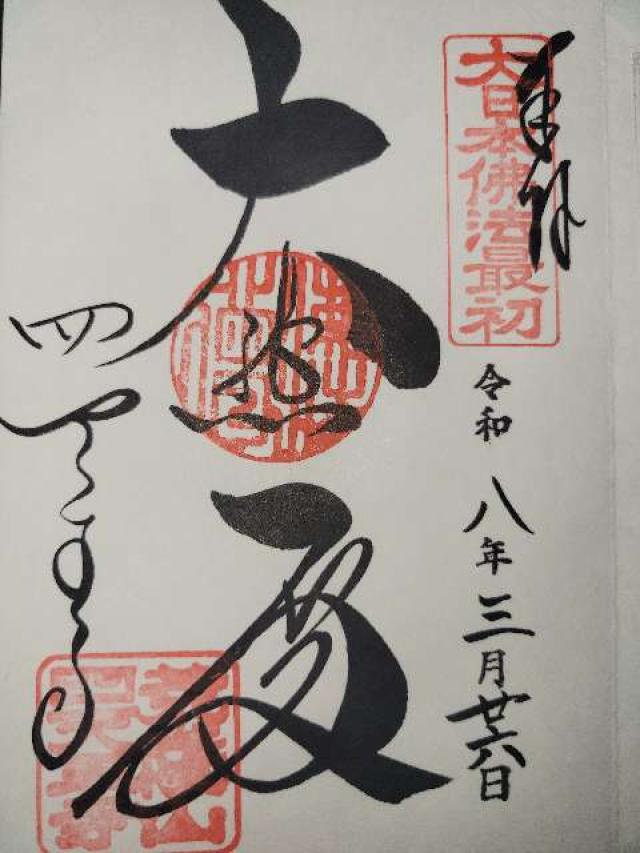 奉拝
大日本佛法最初
令和八年三月廿六日
大
四天王寺
荒陵山
四天王寺